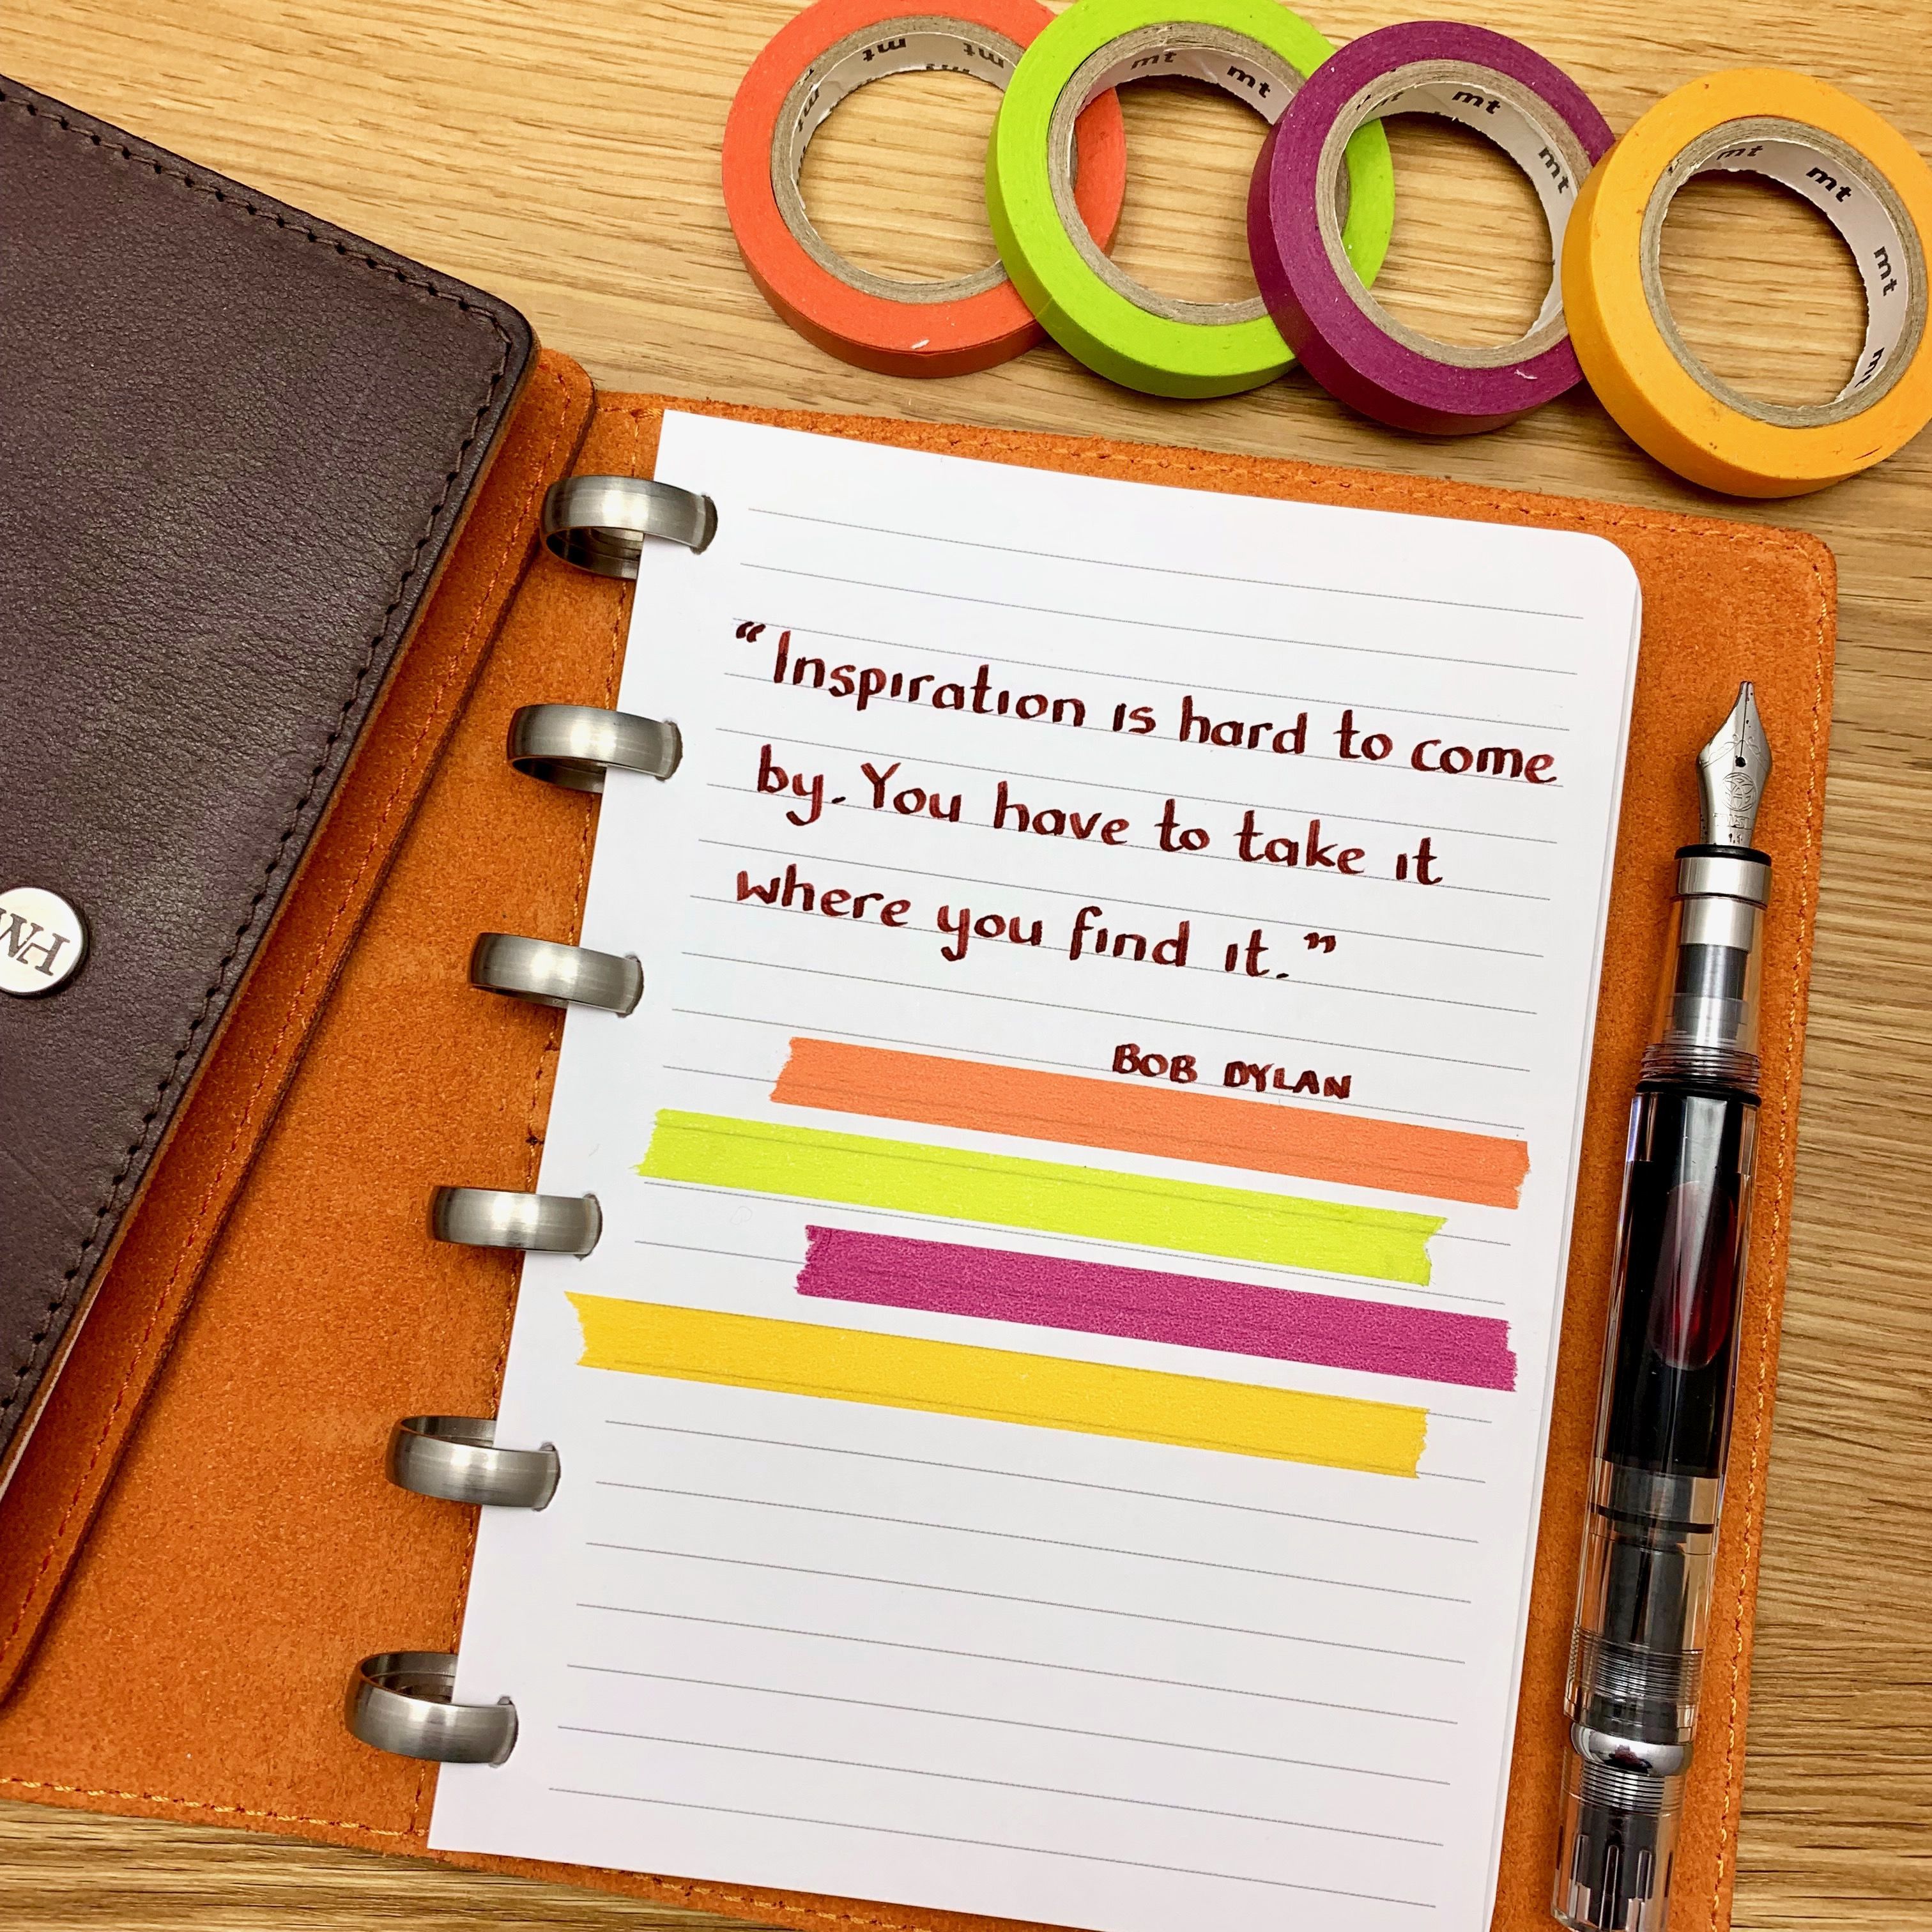 mt mt mt mt
mt mt
mt mt mt
mt mt mt mt
“Inspiration is hard to come
by. You have to take it
where you find it.”
BOB DYLAN